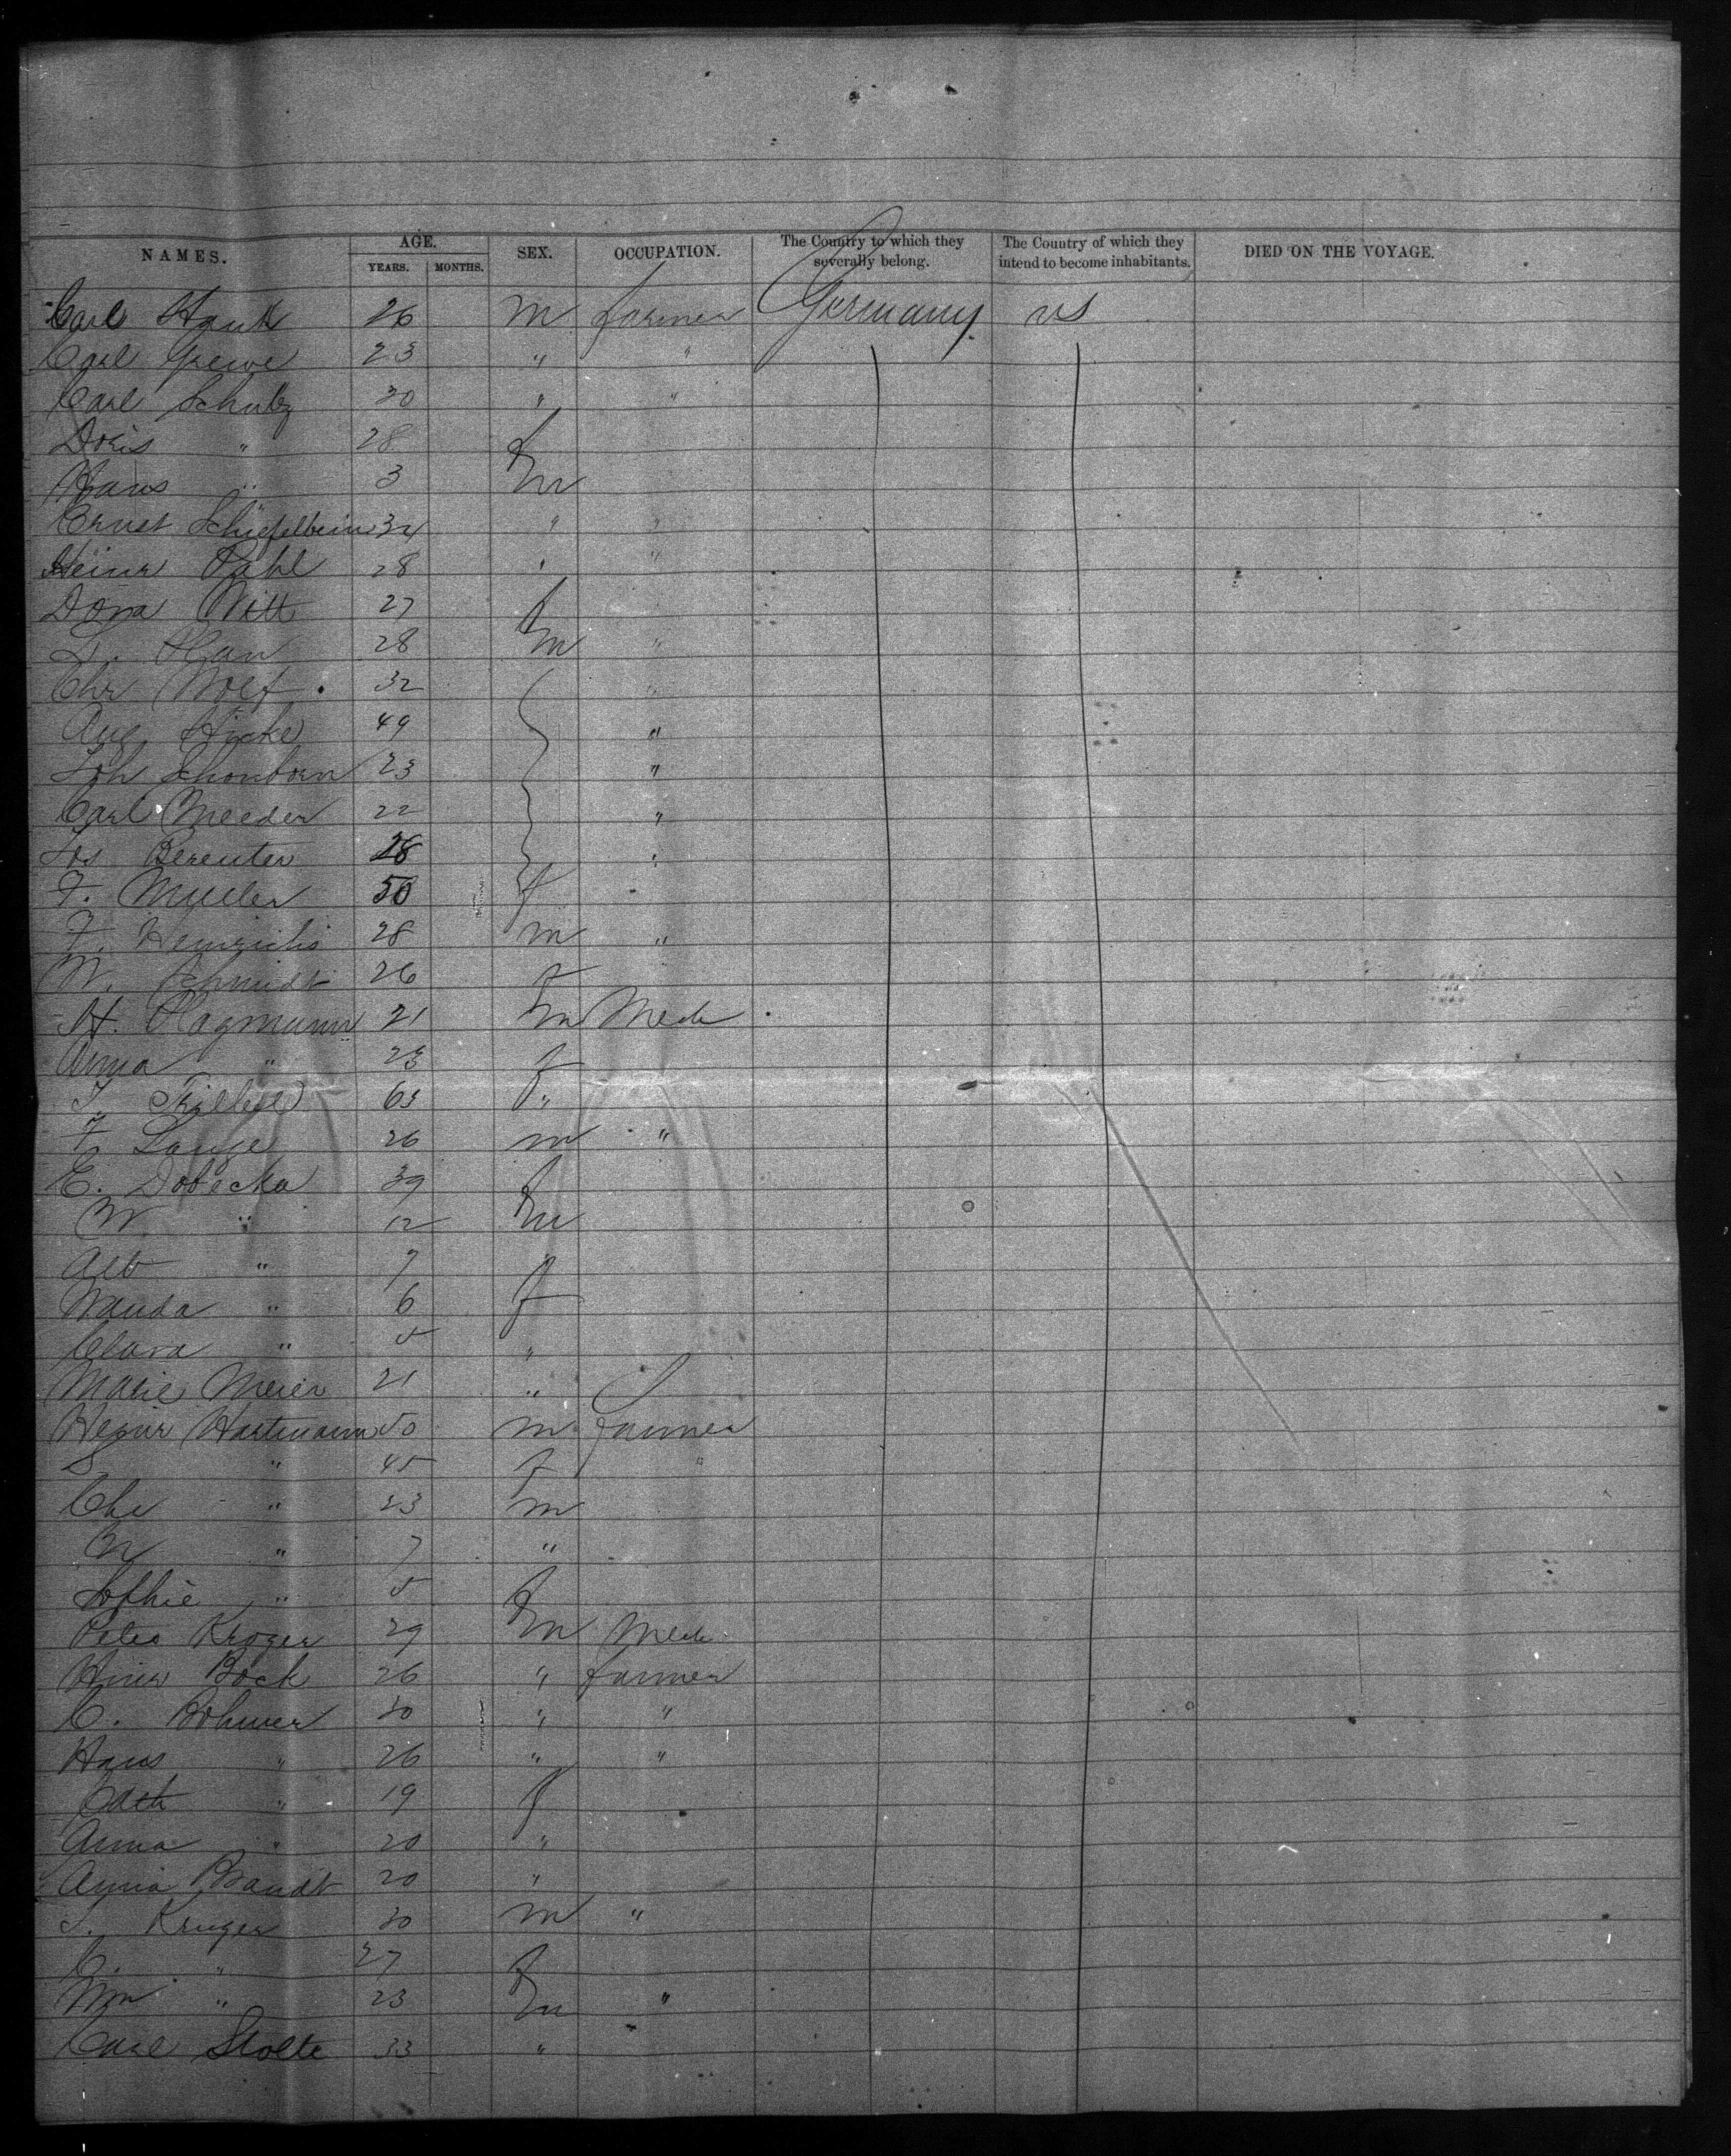 NAMES. AGE. YEARS. MONTHS. SEX. OCCUPATION. The Country to which they severally belong. The Country of which they intend to become inhabitants. DIED ON THE VOYAGE.
Carl Hank 26 m farmer Germany us
Carl Grewe 23 " "
Carl Schulz 30 " "
Doris " 28 f
Hans " 3 m
Ernst Schiefelbein 34 " "
Heinr Pahl 28 " "
Dora Witt 27 f
28 m "
Chr Wolf 32 "
Aug 49 "
Joh Schonborn 23 "
Carl Meeder 22 "
Jos Bereuter 28 "
F. Mueller 50 f
F. Heinrichs 28 m "
W. Schmidt 26 f
H. Plagmann 21 m Mech
Anna " 23 f
63 "
F. Lange 26 m "
E. Dobecka 39 f
W. " 12 m
Alb " 7 "
Wanda " 6 f
Clara " 5 "
Marie Meier 21 "
Heinr Hartmann 50 m farmer
S " 45 f "
Chr " 23 m
W " 7 "
Sophie " 5 f
Peter Kroger 29 m Mech
Hinr Bock 26 " farmer
C. Bohmer 30 " "
Hans " 26 " "
Cath " 19 f
Anna " 20 "
Anna Brandt 20 "
Kruger 30 m "
C. " 27 f
Wm " 23 m "
Carl Stolte 33 "